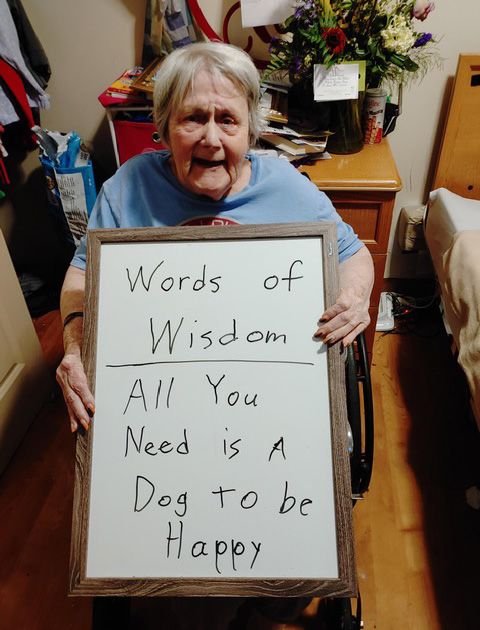 Words of
Wisdom
All You
Need is A
Dog to be
Happy